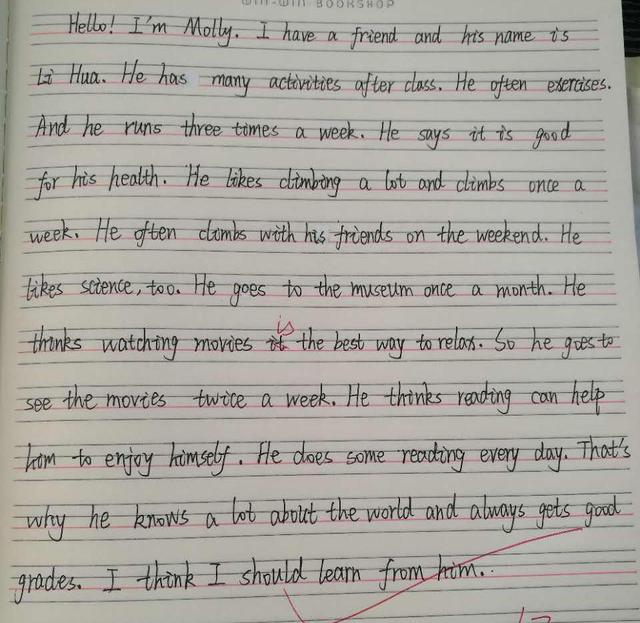 WIN-WIN BOOKSHOP
Hello! I'm Molly. I have a friend and his name is
Li Hua. He has many activities after class. He often exercises.
And he runs three times a week. He says it is good
for his health. He likes climbing a lot and climbs once a
week. He often climbs with his friends on the weekend. He
likes science, too. He goes to the museum once a month. He
is
thinks watching movies it the best way to relax. So he goes to
see the movies twice a week. He thinks reading can help
him to enjoy himself. He does some reading every day. That's
why he knows a lot about the world and always gets good
grades. I think I should learn from him.